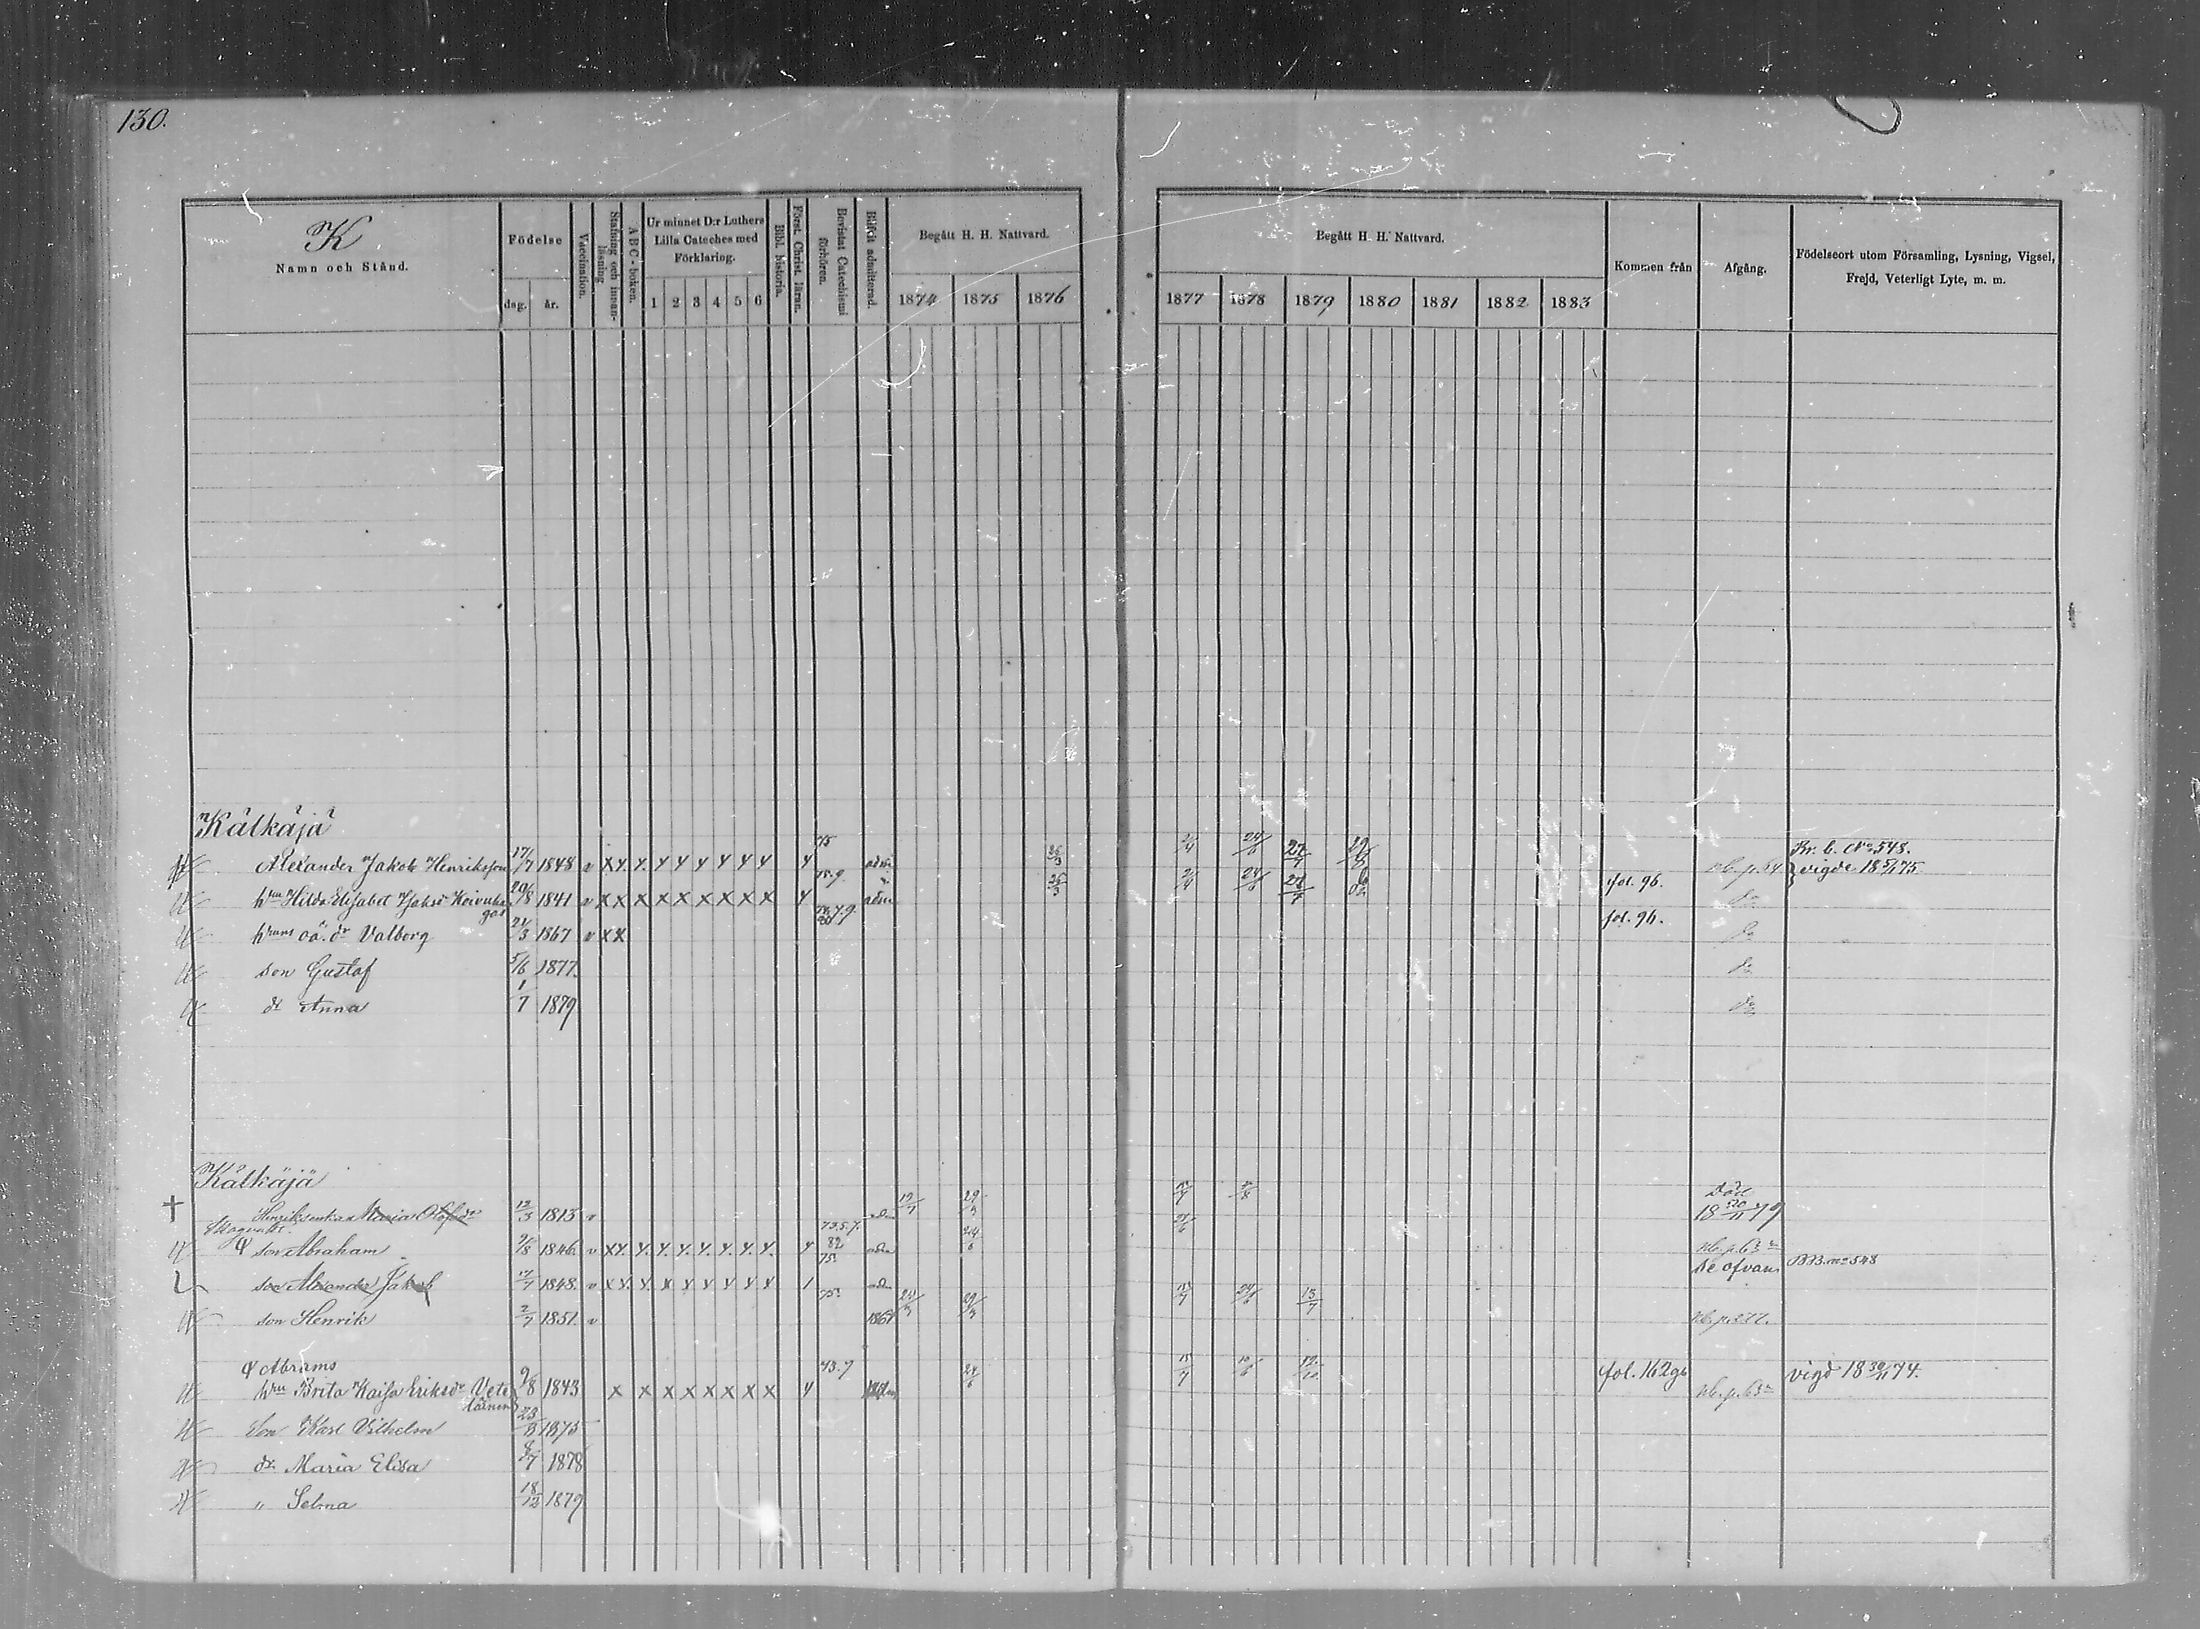 130.
K
Namn och Stånd.
Födelse
dag. år.
Vaccination.
Stafning och innan-läsning.
ABC-boken.
Ur minnet D:r Luthers Lilla Cateches med Förklaring.
1 2 3 4 5 6
Bibl. historia.
Först. Christ. läran.
Bevistat Catechismi förhören.
Blifvit admitterad.
Begått H. H. Nattvard.
1874 1875 1876
Begått H. H. Nattvard.
1877 1878 1879 1880 1881 1882 1883
Kommen från
Afgång.
Födelseort utom Församling, Lysning, Vigsel, Frejd, Veterligt Lyte, m. m.
Kälkäjä
75
Kr. b. No 548.
Alexander Jakob Henriksson 17/7 1848 v x y. y. y y y y y y y adm 26/3 2/4 24/6 vigde 18 5/11 75.
hru Hilda Elisabet Jaksdr Koivukangas 20/8 1841 v x x x x x x x x x y adm 26/3 2/4 24/6 fol. 96. do
hrans oä. dr Valborg 21/3 1867 v x x fol. 96. do
son Gustaf 5/6 1877. do
dr Anna 1/7 1879 do
Kälkäjä
Henriksenkan Maria Olofsdr 12/3 1813 v 19/7 död 18 20/11 79
son Abraham 9/8 1846. v x y. y. y. y. y. y. y. y. y 82 adm 24/6
son Alexander Jakob 17/7 1848. v x y. y. x y y y y y 1 75. se ofvan BB. no 548
son Henrik 2/7 1851. v 75. 1867 15/7 24/6 13/7 nb. p. 277.
Abrams 73.7
hru Brita Kaisa Eriksdr Veteläinen 9/8 1843 x x x x x x x x y 24/6 15/7 10/6 fol. 162 gb nb. p. 63 vigd 18 30/11 74.
Son Karl Vilhelm 23/8 1875
dr Maria Elisa 8/7 1878
" Selma 18/12 1879